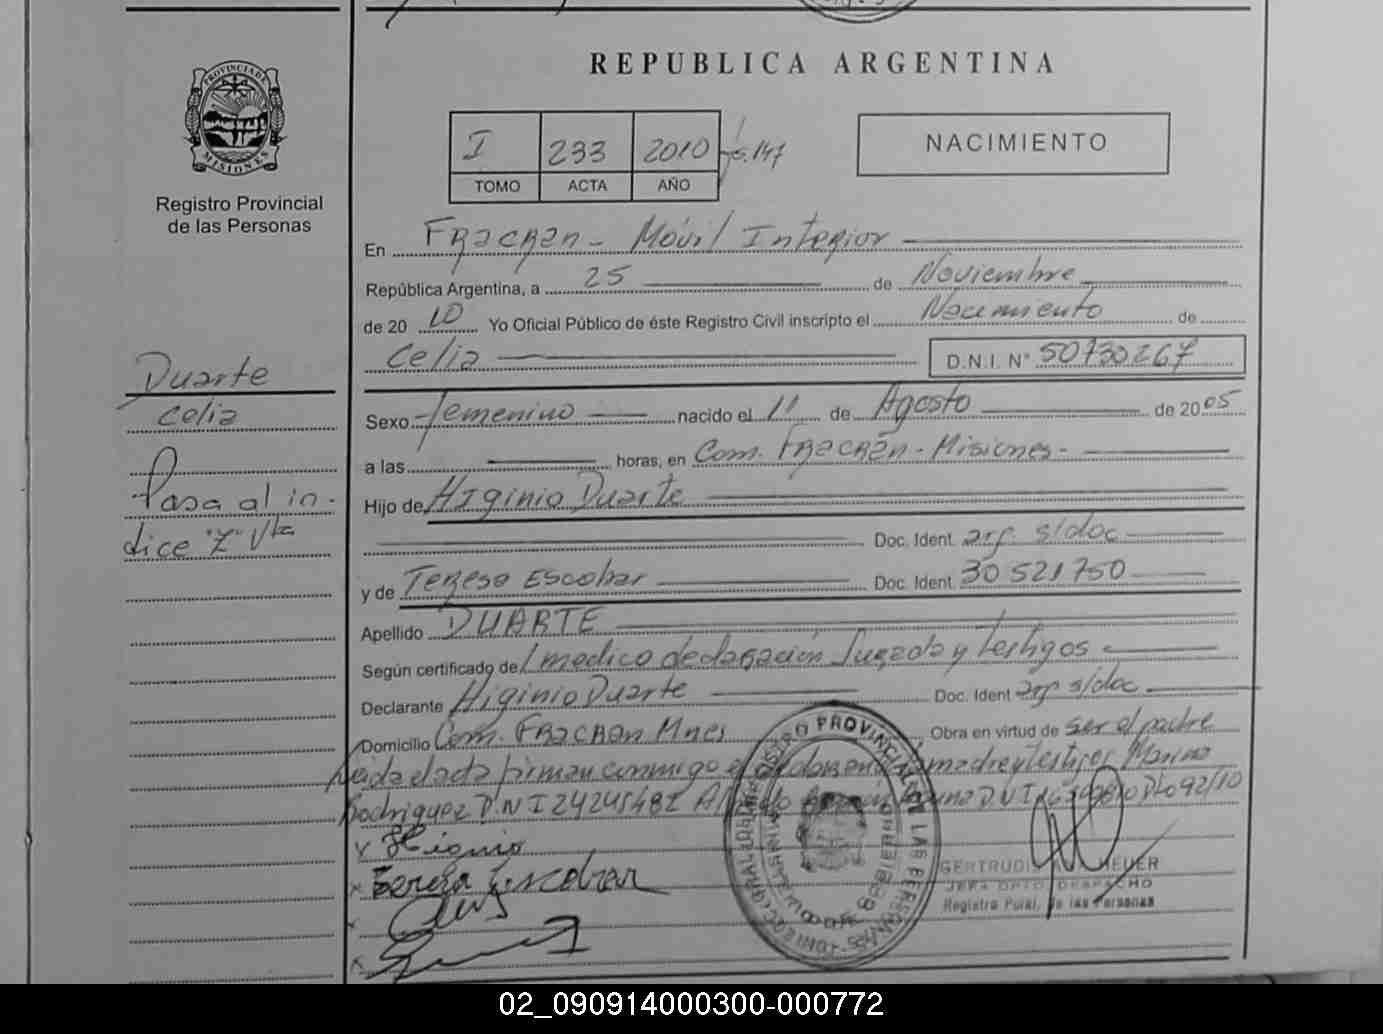 REPUBLICA ARGENTINA
PROVINCIA DE
MISIONES
Registro Provincial
de las Personas
I 233 2010 Fo. 147
TOMO ACTA AÑO
NACIMIENTO
En Fracran - Móvil Interior
República Argentina, a 25 de Noviembre
de 20 10 Yo Oficial Público de éste Registro Civil inscripto el Nacimiento de
Celia D.N.I. N° 50730267
Duarte
Celia
Pasa al in-
dice "Z" Vta
Sexo femenino nacido el 11 de Agosto de 2005
a las horas, en Com. Fracrán - Misiones -
Hijo de Higinio Duarte
Doc. Ident. arg. s/doc
y de Teresa Escobar Doc. Ident. 30521750
Apellido DUARTE
Según certificado de/ medico declaración Jurada y testigos
Declarante Higinio Duarte Doc. Ident arg s/doc
Domicilio Com. Fracran Mnes Obra en virtud de ser el padre
Leida el acta firman conmigo el madre y testigos Marina
Rodriguez D.N I 24245482 D.N I Dto 92/10
x Higinio
x Teresa Escobar
x
x
REGISTRO PROVINCIAL DE LAS PERSONAS
GERTRUDIS HEUER
JEFA DPTO. DESPACHO
Registro Pcial. de las Personas
02_090914000300-000772